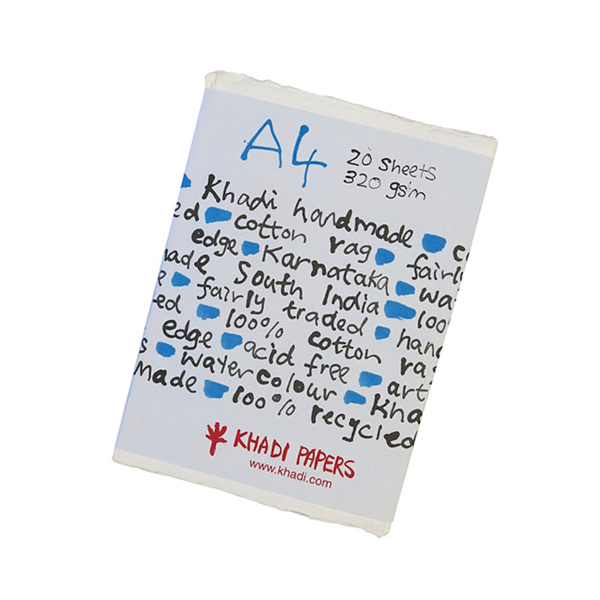 A4
20 sheets
320 gsm
Khadi handmade
cotton rag fairl
edge Karnataka wa
ade South India 100
fairly traded han
ed 100% cotton ra
edge acid free art
s watercolour Kha
made 100% recycled
KHADI PAPERS
www.khadi.com